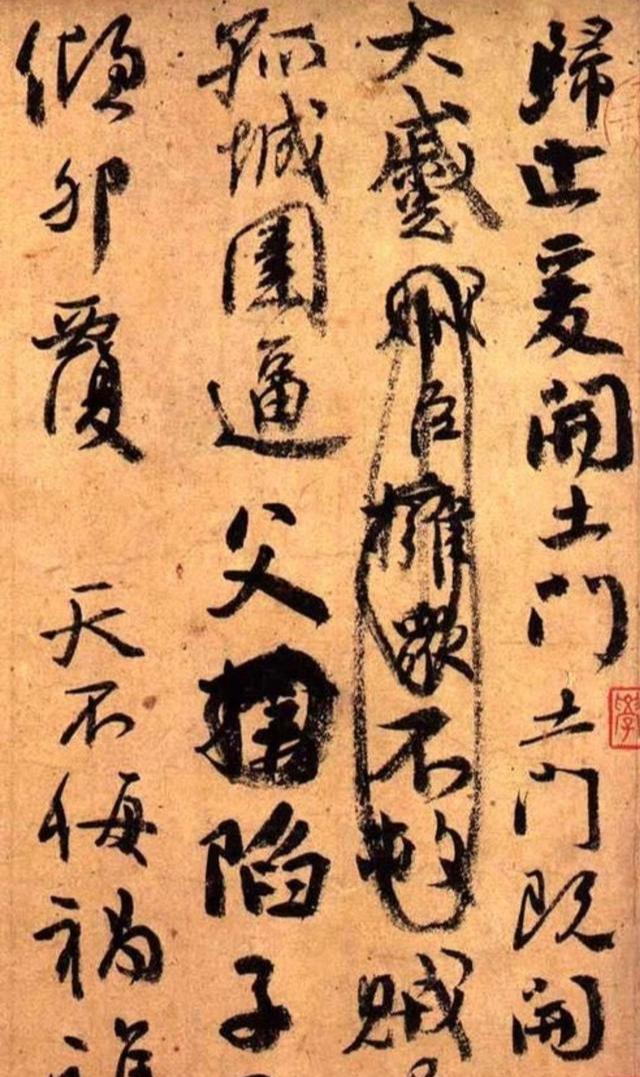 歸止爰開土門土門既開
大蹙賊臣擁衆不救賊
孤城圍逼父陷子
傾卵覆 天不悔禍